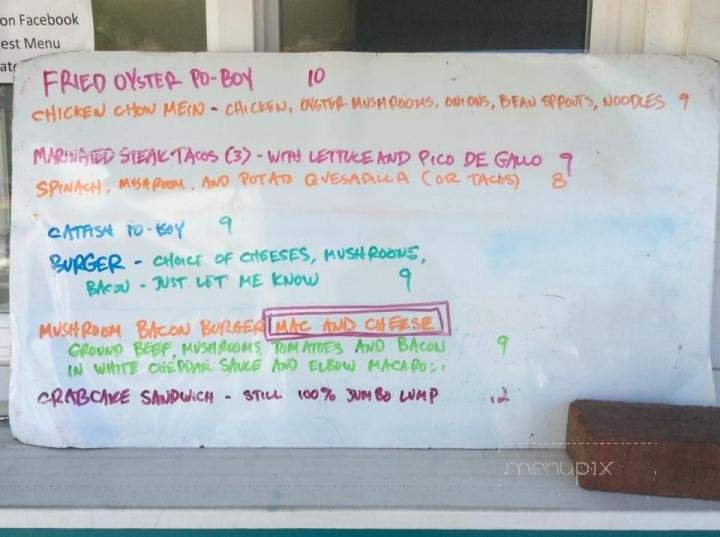 on Facebook
est Menu
FRIED OYSTER PO-BOY 10
CHICKEN CHOW MEIN - CHICKEN, OYSTER MUSHROOMS, ONIONS, BEAN SPROUTS, NOODLES 9
MARINATED STEAK TACOS (3) - WITH LETTUCE AND PICO DE GALLO 9
SPINACH, MUSHROOM, AND POTATO QUESADILLA (OR TACOS) 8
CATFISH PO-BOY 9
BURGER - CHOICE OF CHEESES, MUSHROOMS,
BACON - JUST LET ME KNOW 9
MUSHROOM BACON BURGER MAC AND CHEESE
GROUND BEEF, MUSHROOMS, TOMATOES AND BACON 9
IN WHITE CHEDDAR SAUCE AND ELBOW MACARO
CRABCAKE SANDWICH - STILL 100% JUMBO LUMP 12
menupix